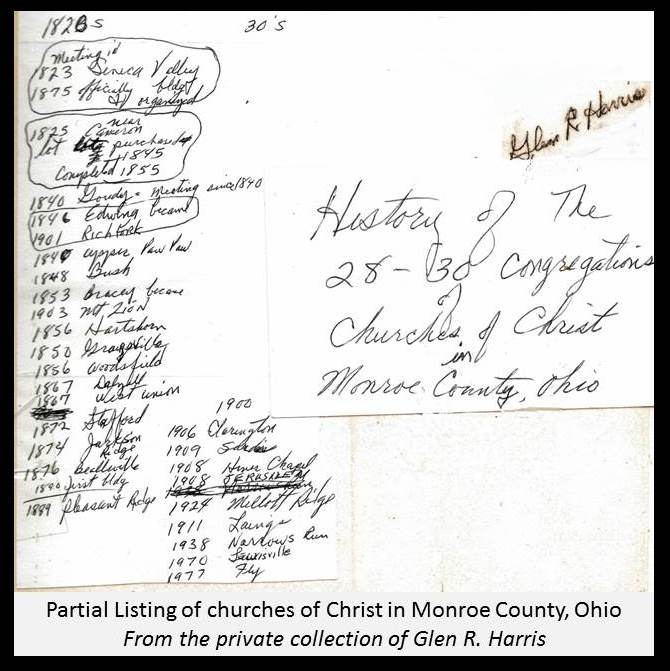 1820s
30's
Meeting in
1823 Seneca Valley
1875 officially bldg
& organized
1825 near Cameron
lot purchased
1845
Completed 1855
1840 Goudy - meeting since 1840
1846 Edwina became
1901 Rich Fork
1847 upper Paw Paw
1848 Bush
1853 Bracey became
1903 Mt Zion
1856 Hartshorn
1850 Graysville
1856 Woodsfield
1867 Dalzell
1867 West Union
1872 Stafford
1874 Jackson
Ridge
1876 Beallsville
1890 first bldg
1889 Pleasant Ridge
1900
1906 Clarington
1909 Sardis
1908 Hines Chapel
1908 JERUSALEM
1924 Mellott Ridge
1911 Laings
1938 Narrows Run
1970 Lewisville
1977 Fly
Glen R. Harris
History of The
28-30 Congregations
of
Churches of Christ
in
Monroe County, Ohio
Partial Listing of churches of Christ in Monroe County, Ohio
From the private collection of Glen R. Harris